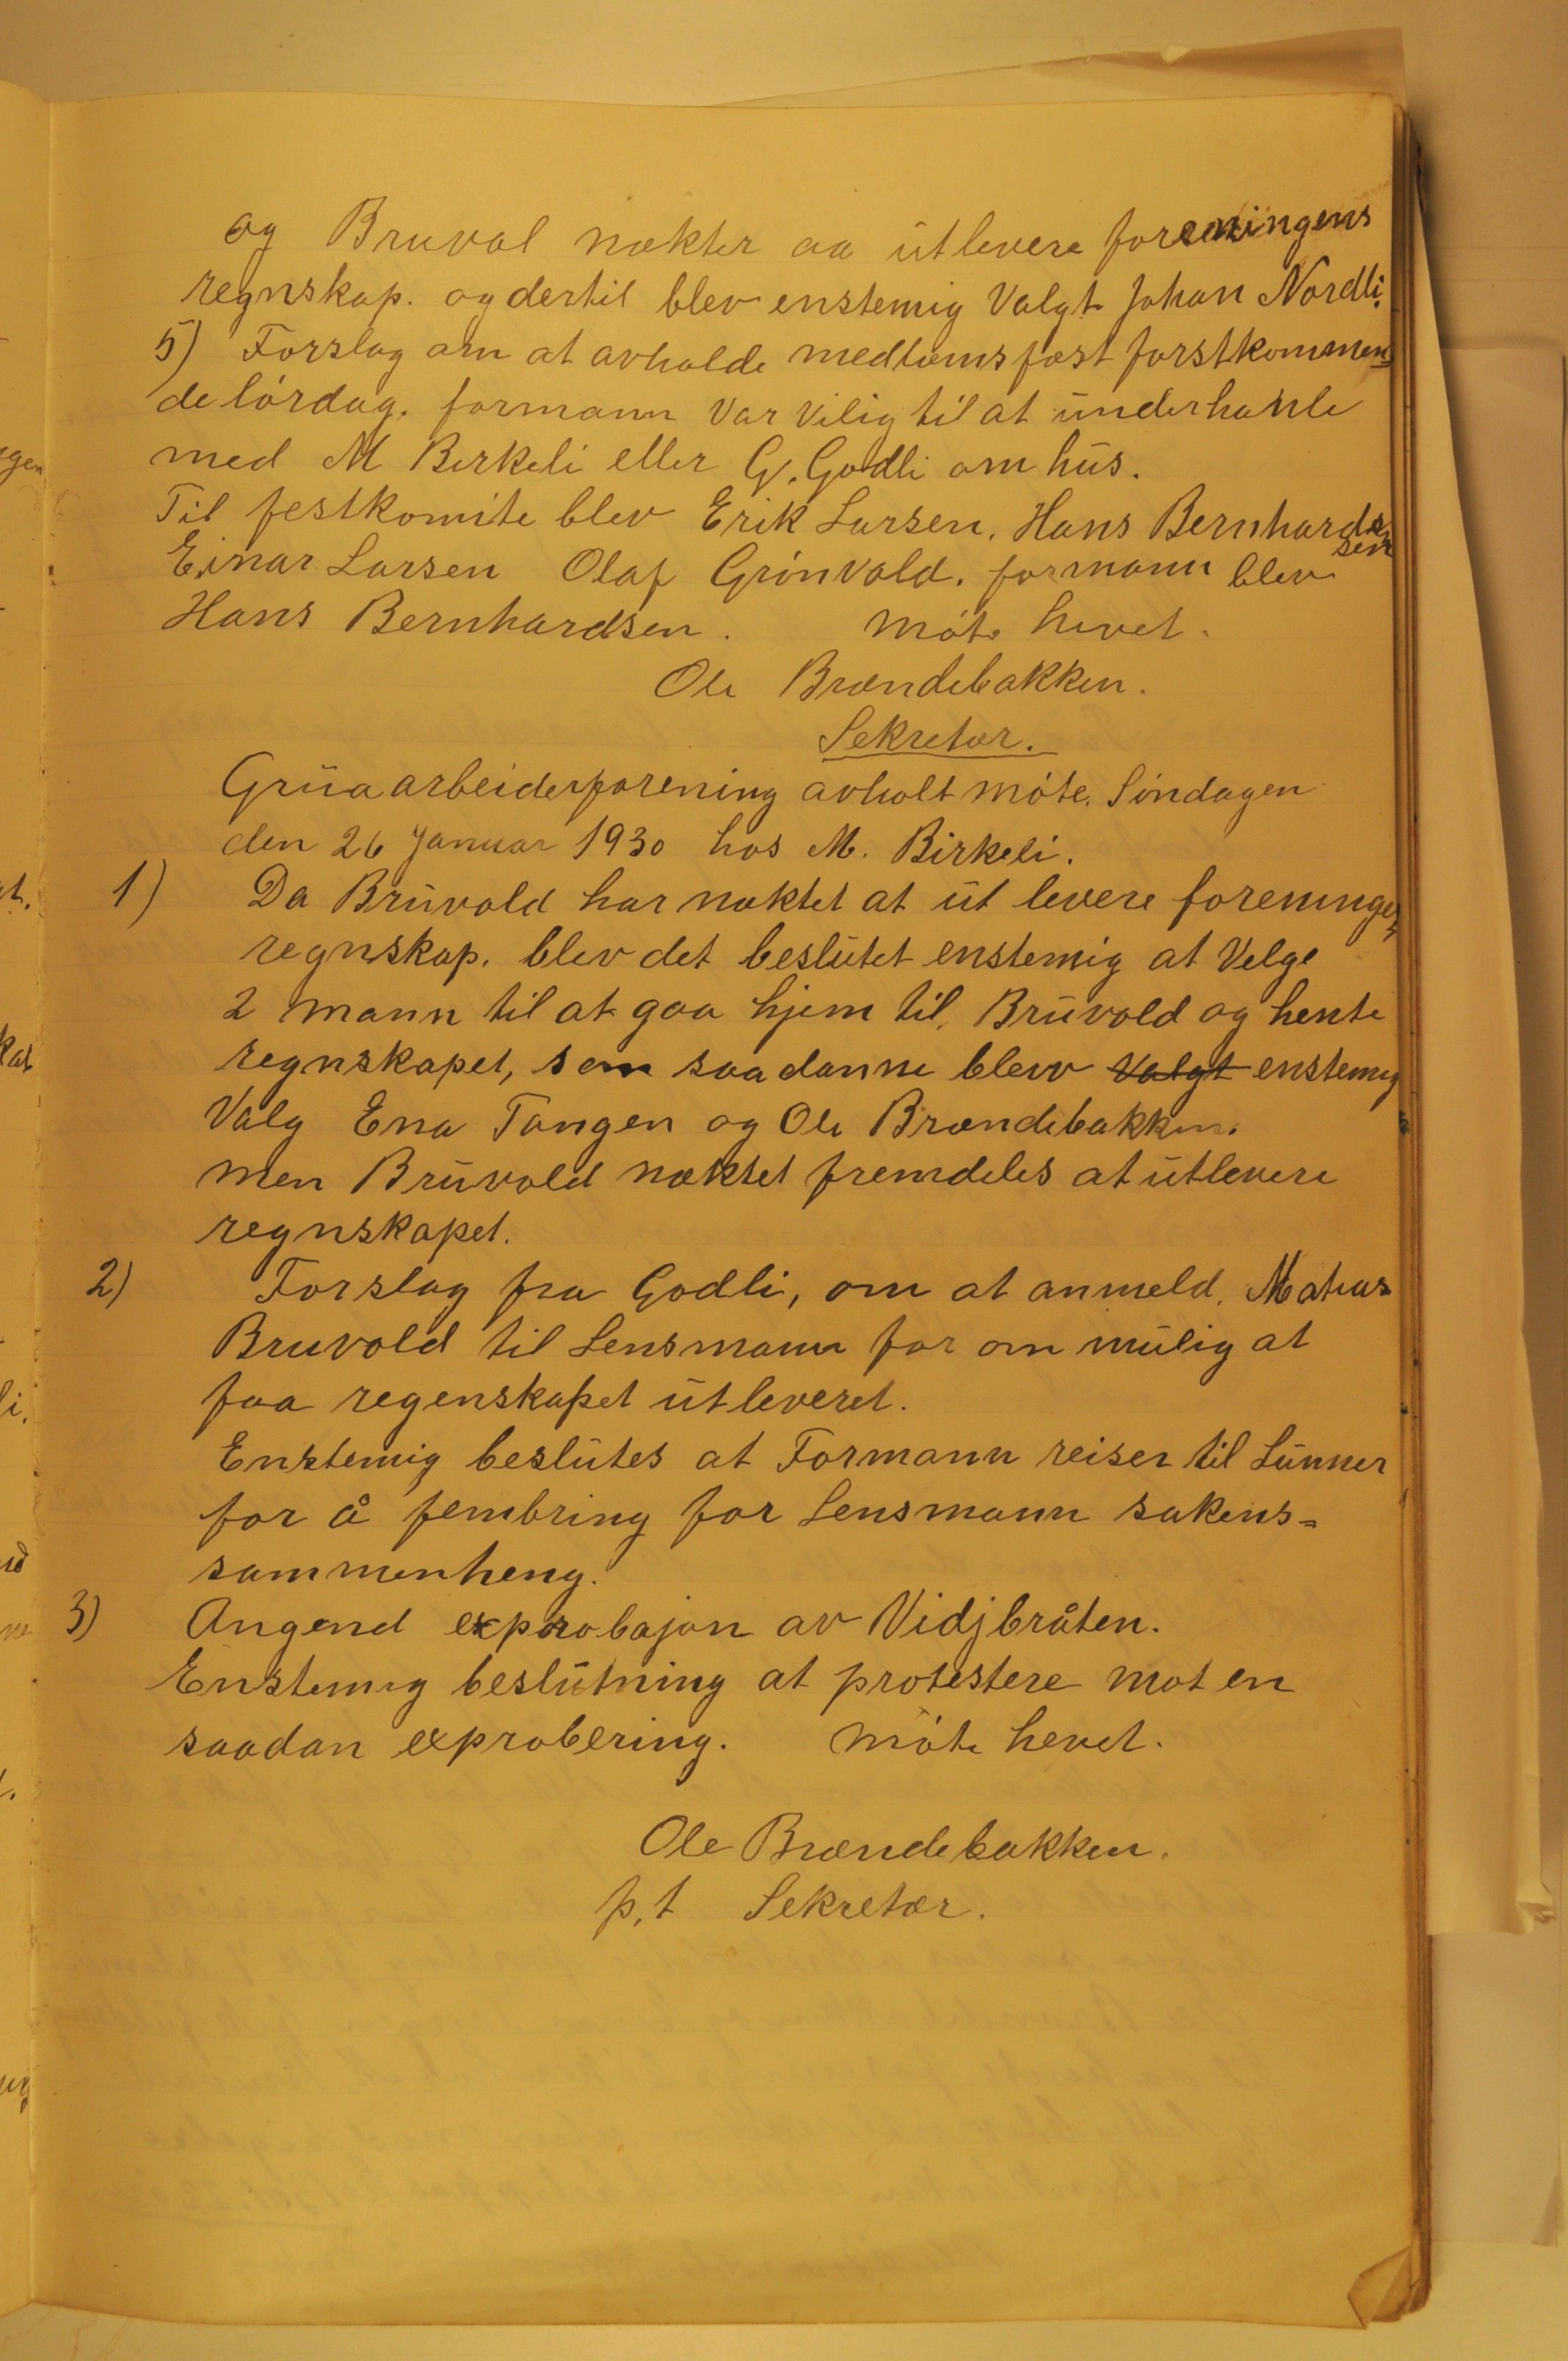 og Bruvol nækter aa utlevere foreningens
regnskap. og dertil blev enstemig Valgt Johan Nordli.
5) Forslag om at avholde medlæmsfæst førstkommen=
de lørdag. formann var vilig til at underhanle
med M Berkeli eller G. Godli om hus.
Til festkomite blev Erik Larsen, Hans Bernhardsen
Einar Larsen Olaf Grönvold. formann blev
Hans Bernhardsen. möte hevet.
Ole Brændebakken.
Sekretær.
Grua arbeiderforening avholt möte. Söndagen
den 26 Januar 1930 hos M. Birkeli.
1) Da Bruvold har næktet at ut levere foreninges
regnskap. blev det beslutet enstemig at Velge
2 mann til at gaa hjem til, Bruvold og hente
regnskapet, som saadanne blev Valgt enstemig
Valg Ena Tangen og Ole Brændebakken.
men Bruvold næktet fremdeles at utlevere
regnskapet.
2) Forslag fra Godli, om at anmeld. Matias
Bruvold til Lensmann for om mulig at
faa regenskapet utleveret.
Enstemig beslutes at Formann reiser til Lunner
for å fembring for Lensmann sakens=
sammenheng.
3) Angend exprobasjon av Vidjbråten.
Enstemig beslutning at protestere mot en
saadan exprobering. möte hevet.
Ole Brændebakken.
p,t Sekretær.